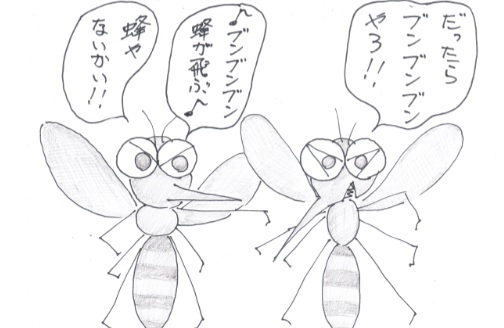 だったら
ブンブンブン
やろ!!
♪ブンブンブン
蜂が飛ぶ〜♪
蜂や
ないかい!!